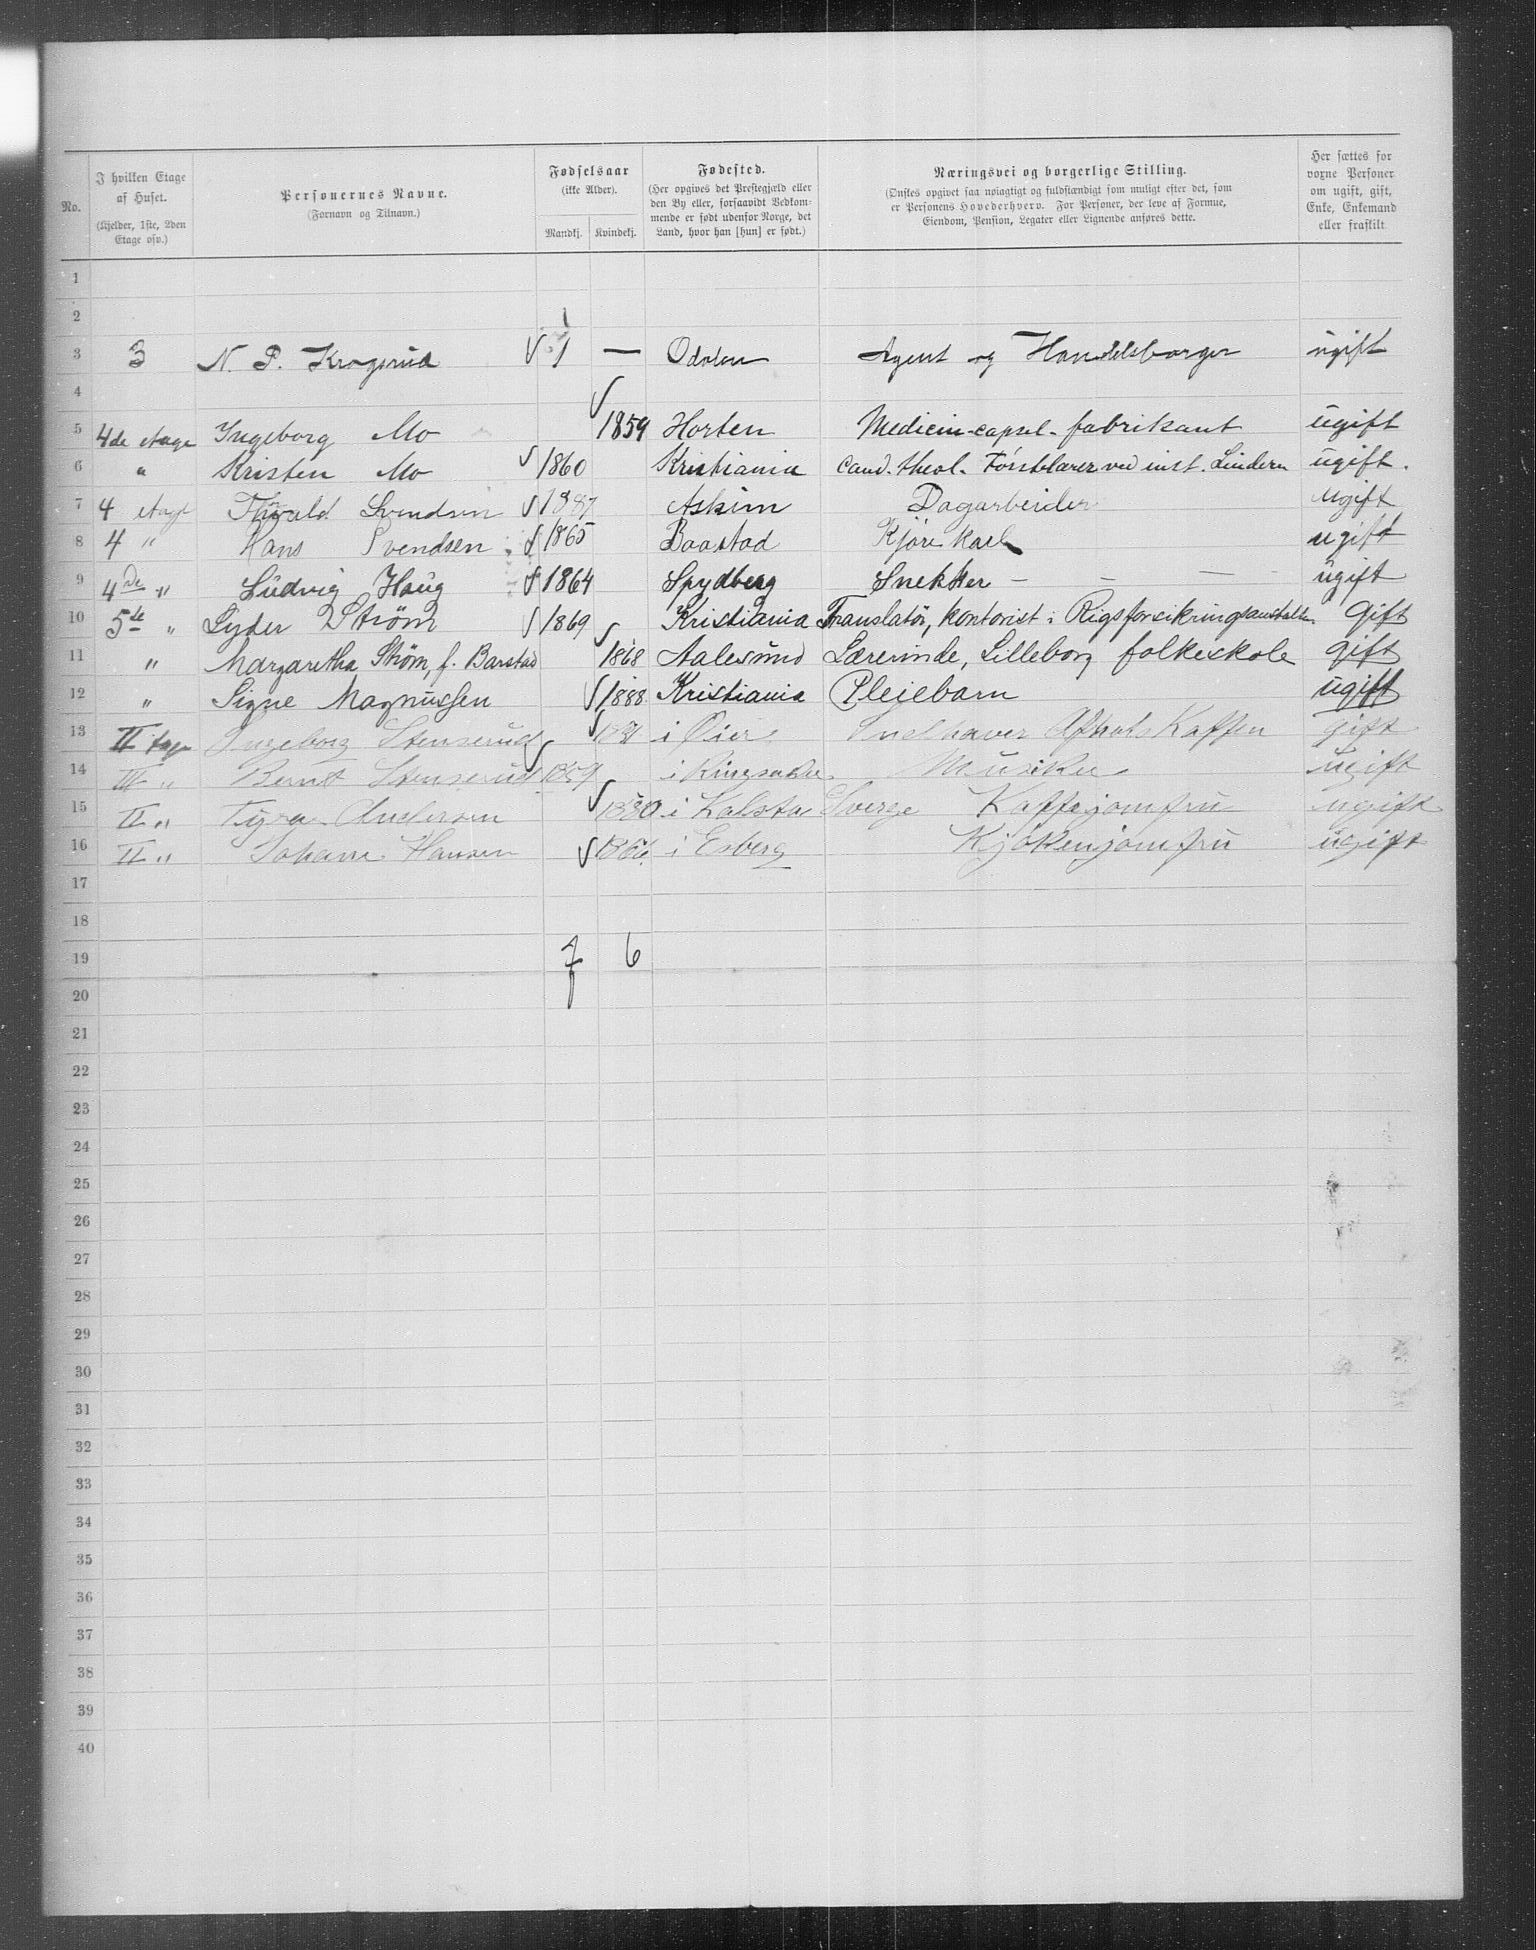 No. | I hvilken Etage af Huset. (Kjelder, 1ste, 2den Etage osv.) | Personernes Navne. (Fornavn og Tilnavn.) | Fødselsaar (ikke Alder). Mandkj. | Kvindekj. | Fødested. (Her opgives det Prestegjæld eller den By eller, forsaavidt Vedkommende er født udenfor Norge, det Land, hvor han [hun] er født.) | Næringsvei og borgerlige Stilling. (Ønskes opgivet saa nøiagtigt og fuldstændigt som muligt efter det, som er Personens Hovederhverv. For Personer, der leve af Formue, Eiendom, Pension, Legater eller Lignende anføres dette. | Her sættes for voxne Personer om ugift, gift, Enke, Enkemand eller fraskilt.
1
2
3 3 N. P. Krogsrud 1 — Odalen Agent og Handelsborger ugift
4
5 4de etage Ingeborg Mo 1859 Horten Medicin-capsel-fabrikant ugift
6 " Kristen Mo 1860 Kristiania Cand. theol. ved inst. Lindern ugift.
7 4 etage Svendsen 1887 Askim Dagarbeider ugift
8 4 " Hans Svendsen 1865 Baastad Kjørekarl ugift
9 4de " Ludvig Haug 1864 Spydberg Snekker — — — ugift
10 5te " Lyder Strøm 1869 Kristiania Translatør, kontorist i Rigsforsikringsanstalten Gift
11 " Margaretha Strøm, f. Barstad 1868 Aalesund Lærerinde, Lilleborg folkeskole gift
12 " Signe Magnussen 1888 Kristiania Pleiebarn ugift
13 II Ingeborg Stenserud i Øier Indhaver Afholds Kaffen gift
14 III " Bernt Stenserud 1859 i Ringsaker Musiker ugift
15 II " Tyra Andersen 1880 i Sverge Kaffejomfru ugift
16 II " Johane Hansen 1866 i Esberg Kjøkenjomfru ugift
17
18
19 7 6
20
21
22
23
24
25
26
27
28
29
30
31
32
33
34
35
36
37
38
39
40